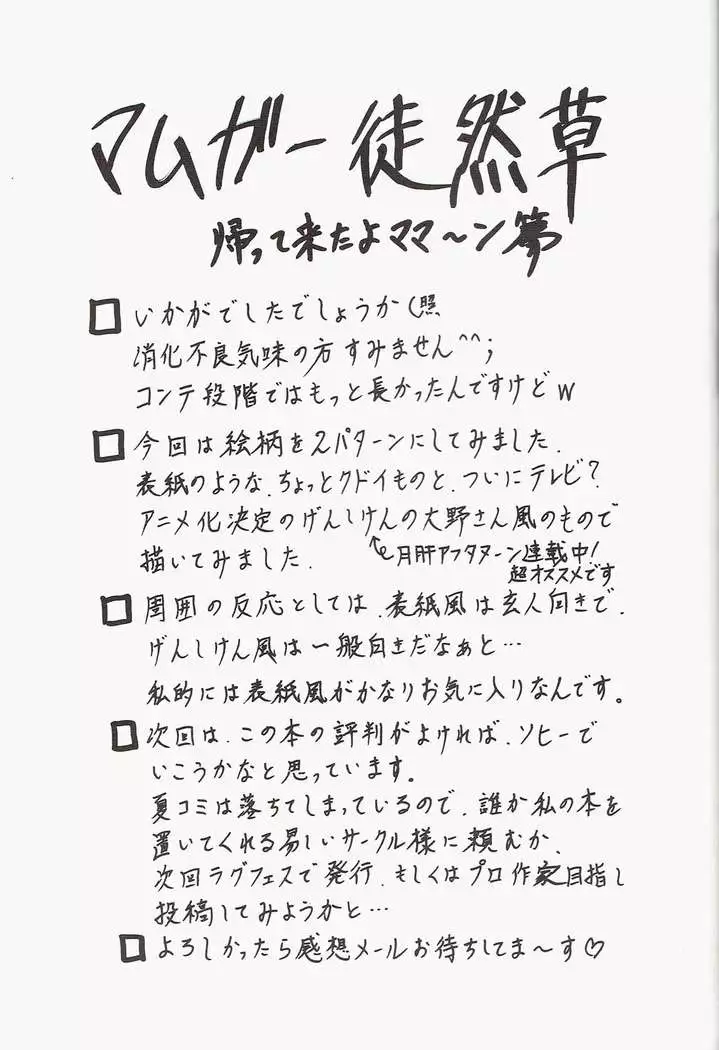 マムガー徒然草
帰って来たよママ～ン夢
□いかがでしたでしょうか(照
消化不良気味の方すみません^^;
コンテ段階ではもっと長かったんですけどw
□今回は絵柄を2パターンにしてみました.
表紙のような.ちょっとクドイものと.ついにテレビ?
アニメ化決定のげんしけんの大野さん風のもので
描いてみました.
↑月刊アフタヌーン連載中!
超オススメです
□周囲の反応としては.表紙風は玄人向きで.
げんしけん風は一般向きだなぁと…
私的には表紙風がかなりお気に入りなんです。
□次回は.この本の評判がよければ.ソヒーで
いこうかなと思っています。
夏コミは落ちてしまっているので.誰か私の本を
置いてくれる易しいサークル様に頼むか.
次回ラグフェスで発行.もしくはプロ作家目指し
投稿してみようかと…
□よろしかったら感想メールお待ちしてま～す♡